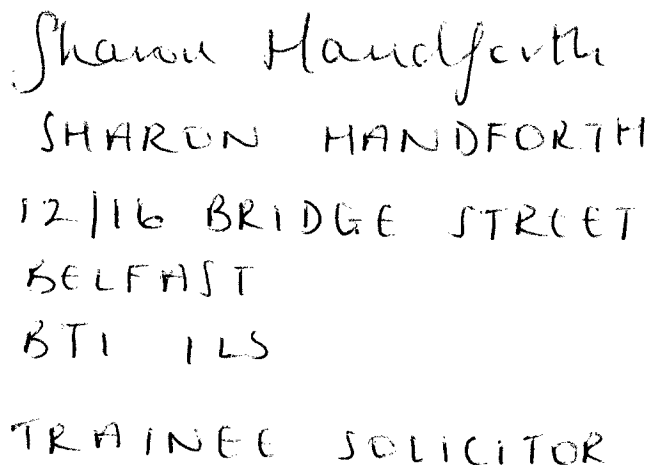 Sharon Handforth
SHARON HANDFORTH
12/16 BRIDGE STREET
BELFAST
BT1 1LS
TRAINEE SOLICITOR